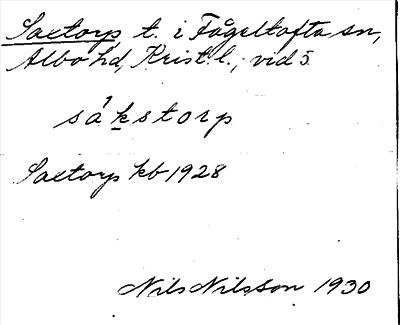 Saxtorp t. i Fågeltofta sn,
Albo hd, Krist. l., vid 5
såkstorp
Saxtorp kb 1928
Nils Nilsson 1930